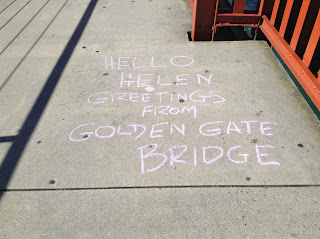 HELLO
HELEN
GREETINGS
FROM
GOLDEN GATE
BRIDGE